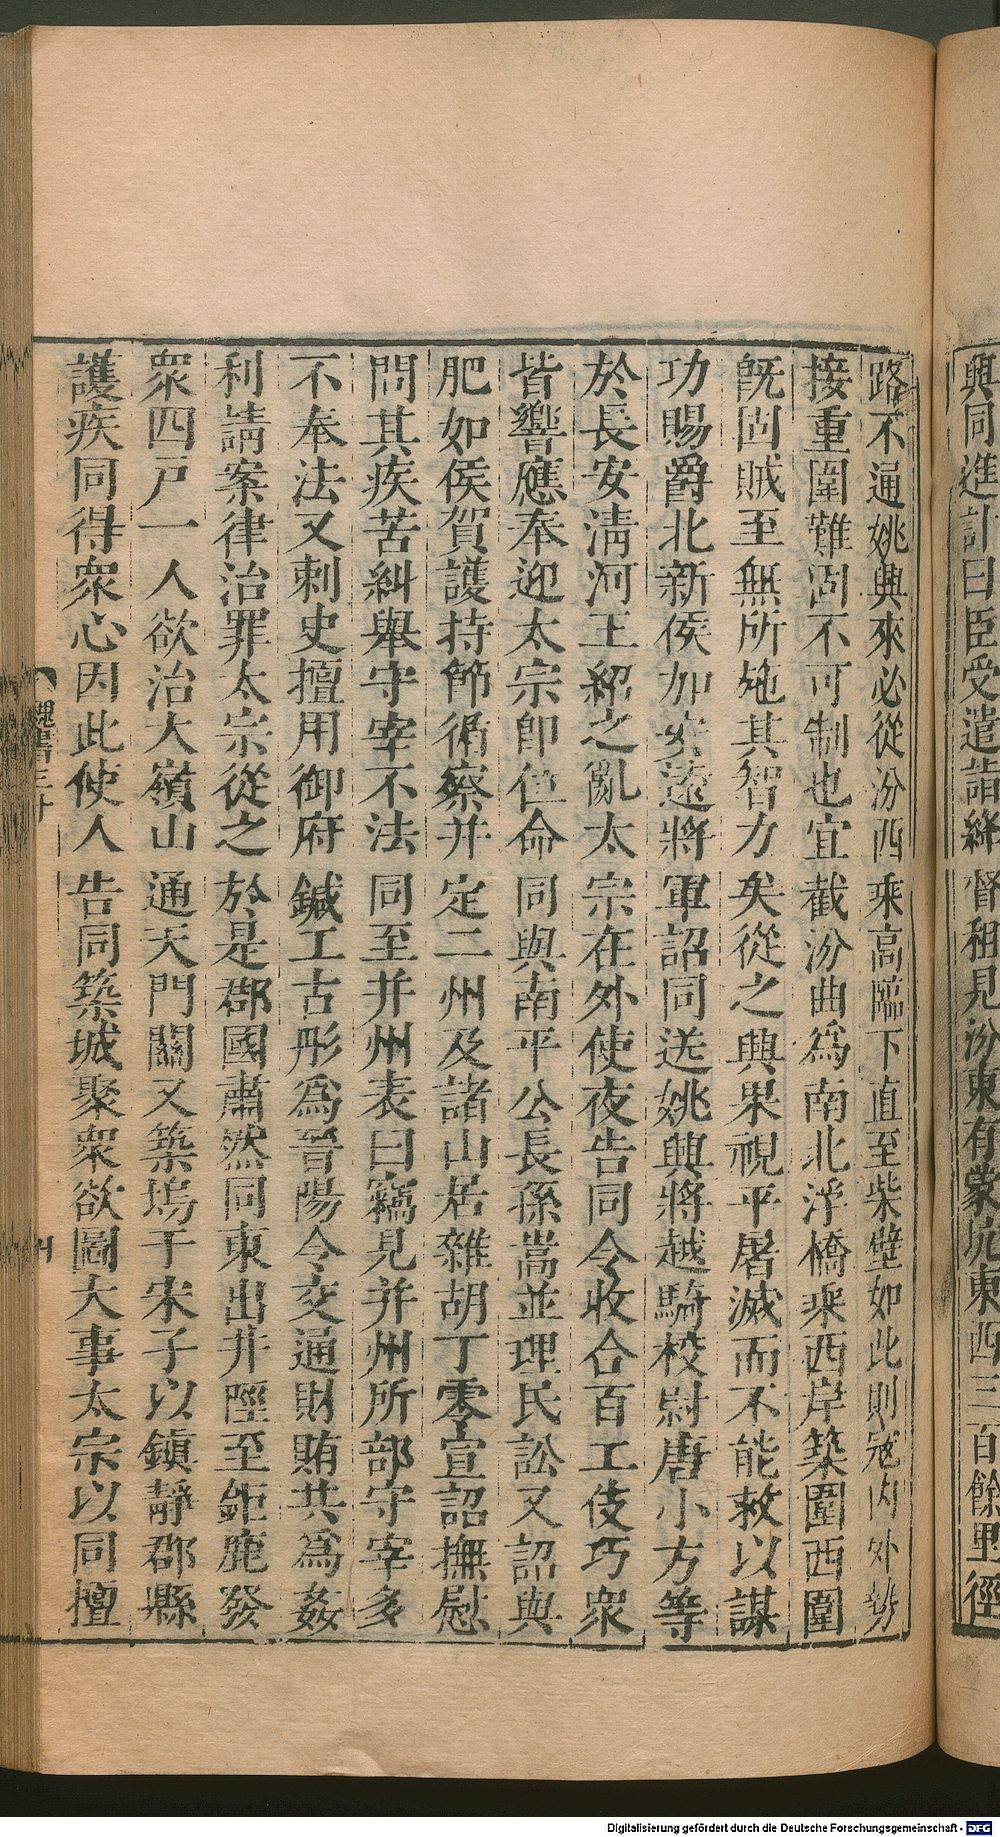 興同進計曰臣受遣詣絳督租見汾東有蒙坑東西三百餘里徑
路不通姚興來必從汾西乘高臨下直至柴壁如此則寇內外勢
接重圍難固不可制也宜截汾曲爲南北浮橋乘西岸築圍西圍
旣固賊至無所施其智力矣從之興果視平屠滅而不能救以謀
功賜爵北新侯加安遠將軍詔同送姚興將越騎校尉唐小方等
於長安淸河王紹之亂太宗在外使夜告同令收合百工伎巧衆
皆響應奉迎太宗卽位命同與南平公長孫嵩並理民訟又詔與
肥如侯賀護持節循察并定二州及諸山居雜胡丁零宣詔撫慰
問其疾苦糾舉守宰不法同至并州表曰竊見并州所部守宰多
不奉法又刺史擅用御府鍼工古彤爲晉陽令交通財賄共爲姦
利請案律治罪太宗從之於是郡國肅然同東出井陘至鉅鹿發
衆四戸一人欲治大嶺山通天門關又築塢于宋子以鎭靜郡縣
護疾同得衆心因此使人告同築城聚衆欲圖大事太宗以同擅
魏書三十
Digitalisierung gefördert durch die Deutsche Forschungsgemeinschaft - DFG